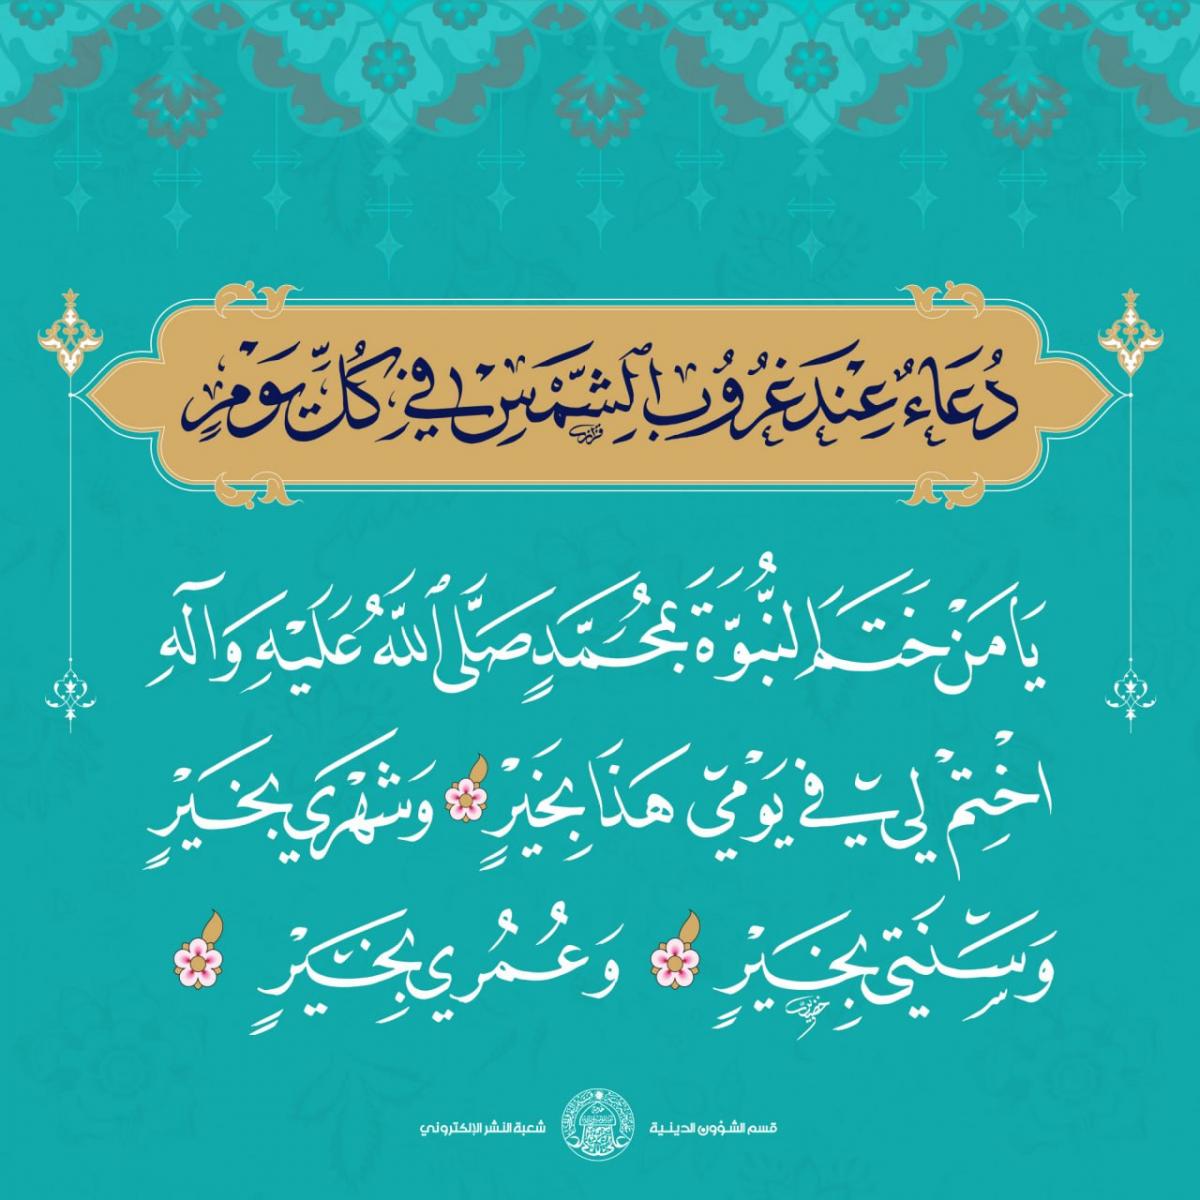 دُعَاءٌ عِنْدَ غُرُوبِ الشَّمْسِ فِي كُلِّ يَوْمٍ
يَا مَنْ خَتَمَ النُّبُوَّةَ بِمُحَمَّدٍ صَلَّى اللَّهُ عَلَيْهِ وَآلِهِ
اخْتِمْ لِي فِي يَوْمِي هَذَا بِخَيْرٍ وَشَهْرِي بِخَيْرٍ
وَسَنَتِي بِخَيْرٍ وَعُمُرِي بِخَيْرٍ
قسم الشؤون الدينية شعبة النشر الإلكتروني